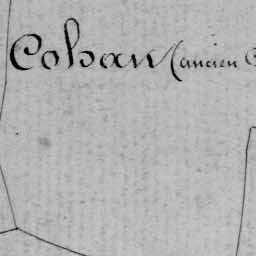 Cohan (ancien